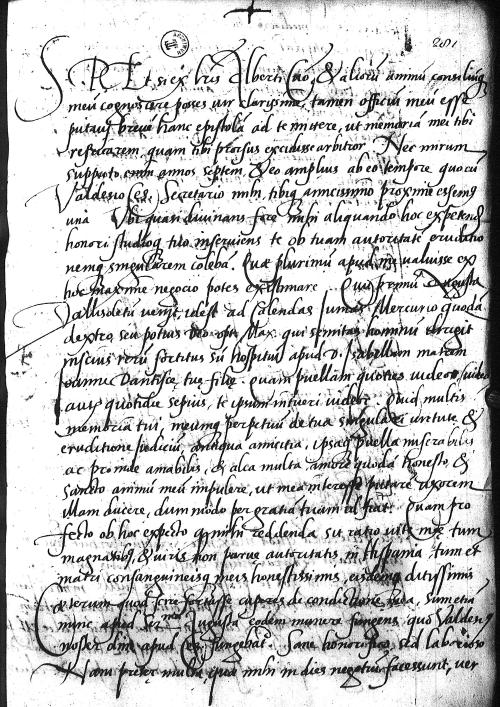 281
S. P. Etsi ex l͞ris Alberti Cuo͞, & aliorũ animũ consiliumq;
meũ cognoscere potes vir clarissime, tamen officiũ meũ esse
putavi brevẽ hanc epistolã ad te mittere, ut memoriã mei tibi
refricarem quam tibi prorsus excidisse arbitror. Nec mirum
supposito enim annos septem, & eo amplius ab eo tempore quo cũ
Valdesio Ces. Secretario mihi, tibiq; amicissimo proxime essemus
unã. Ubi quasi divinans fore mihi aliquando hoc expetendũ
honori studioq; tuo inserviens te ob tuam autoritatẽ eruditio
nemq; singularem colebã. Quæ plurimũ apud me valuisse ex
hoc maxime negocio potes existimare. Cum primũ Augusta
Vallisoletũ venit, idest ad calendas Junias Mercurio quodã
dextro, seu potius Deo opt. Max. qui semitas hominũ dirigit
inscius rerũ sortitus sũ hospitiũ apud D. Isabellam matrem
Joannæ Dantiscæ tuæ filiæ. quam puellam quoties video, video
autẽ quotidie sepius, te ipsum intueri videor. Quid multis
memoria tui, meumq; perpetuũ de tua singulari virtute, &
eruditione judiciũ, antiqua amicitia, ipsaq; puella miserabilis
ac proinde amabilis, & alia multa amore quodã honesto, &
sancto animũ meũ impulere, ut mea interesse putarẽ uxorem
illam ducere, dum modo per gratiã tuam id fiat. Quam pro
fecto ob hoc expecto quoniã reddenda sit ratio vitæ meæ tum
magnatibus, & viris non parvæ autoritatis in Hispania, tum et
matri consanguineisq; meis honestissimis, eisdemq; ditissimis
Cæterum quod scire fortasse cuperes de conditione mea, sum etiã
nunc apud Ser.mã Augustã eodem munere fungens, quo Valdesius
noster olim apud Ces. fungebatur. Sane honorifico, sed laborioso
Nam preter multa, quæ mihi in dies negotiũ facessunt, ver